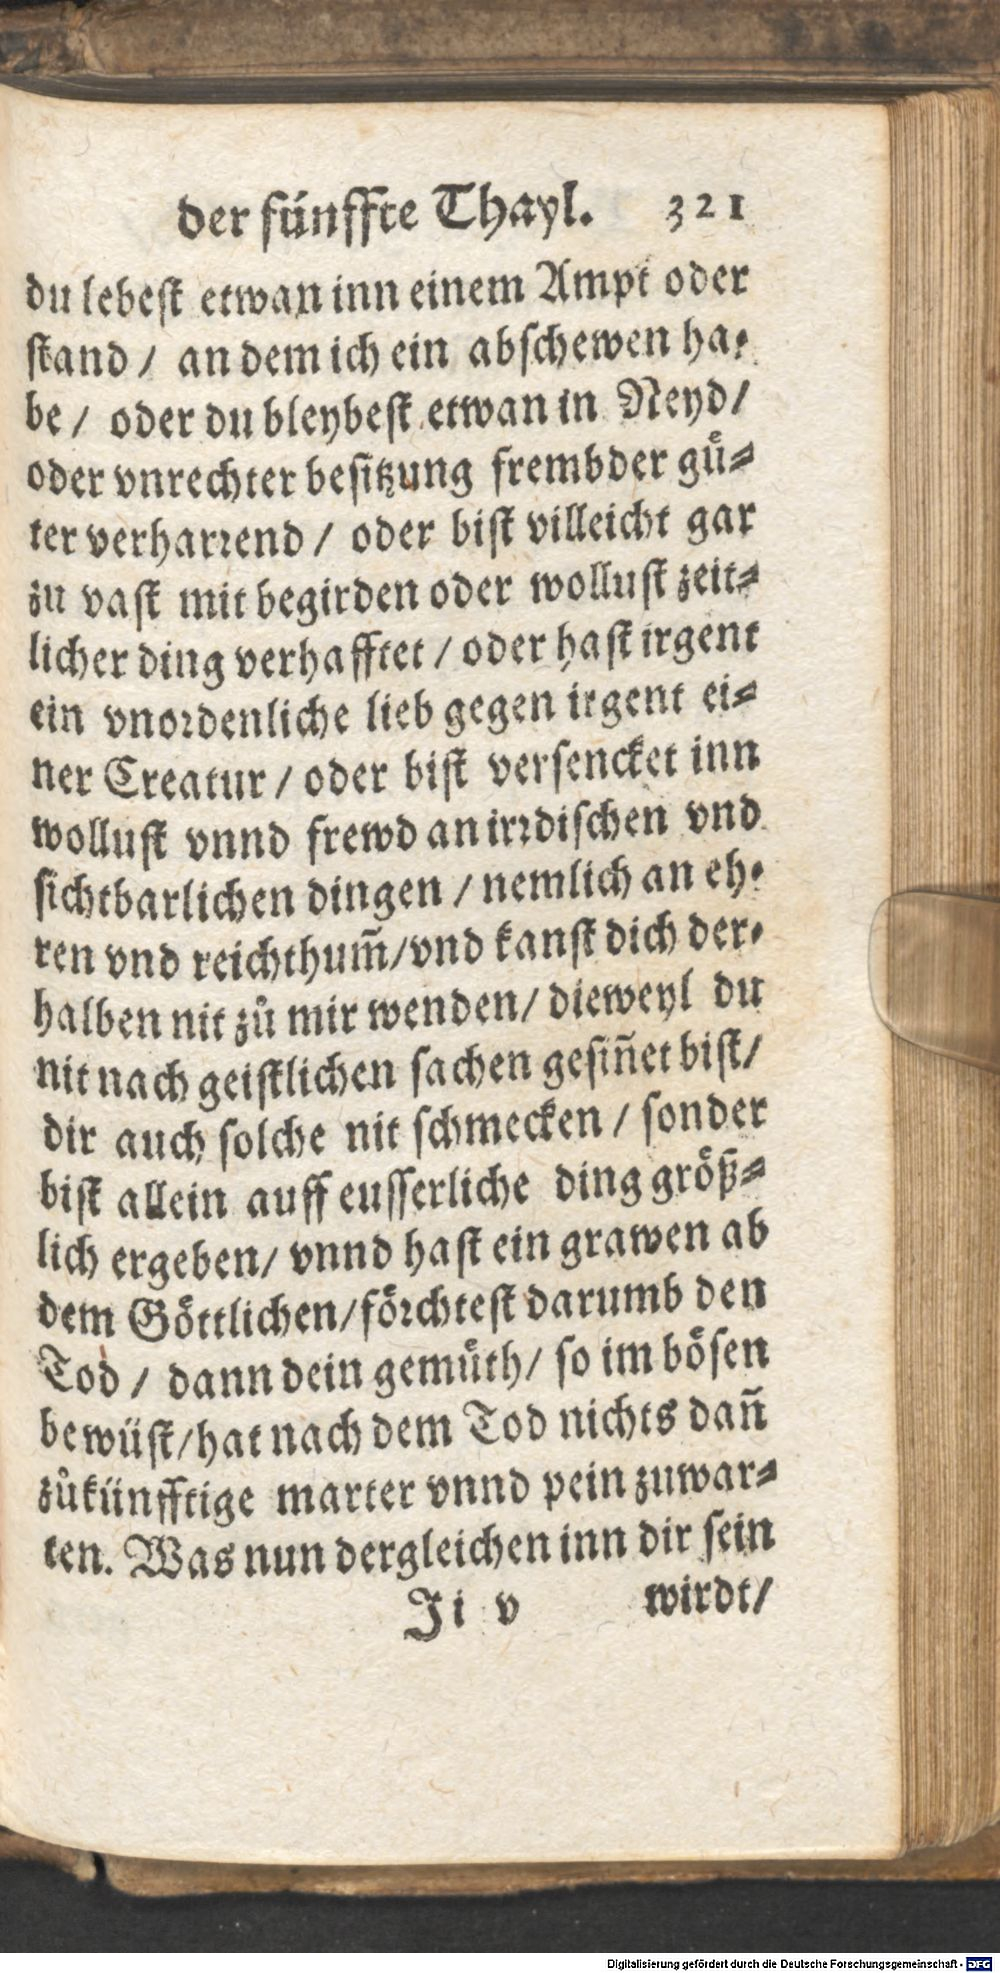 der fünffte Thayl. 321
du lebest etwan inn einem Ampt oder
stand / an dem ich ein abschewen ha-
be / oder du bleybest etwan in Neyd /
oder vnrechter besitzung frembder guͤ-
ter verharrend / oder bist villeicht gar
zu vast mit begirden oder wollust zeit-
licher ding verhafftet / oder hast irgent
ein vnordenliche lieb gegen irgent ei-
ner Creatur / oder bist versencket inn
wollust vnnd frewd an irrdischen vnd
sichtbarlichen dingen / nemlich an eh-
ren vnd reichthum̃ / vnd kanst dich der-
halben nit zů mir wenden / dieweyl du
nit nach geistlichen sachen gesiñet bist /
dir auch solche nit schmecken / sonder
bist allein auff eusserliche ding groͤß-
lich ergeben / vnnd hast ein grawen ab
dem Goͤttlichen / foͤrchtest darumb den
Tod / dann dein gemuͤth / so im boͤsen
bewüst / hat nach dem Tod nichts dañ
zůkünfftige marter vnnd pein zuwar-
ten. Was nun dergleichen inn dir sein
Ji v wirdt /
Digitalisierung gefördert durch die Deutsche Forschungsgemeinschaft - DFG